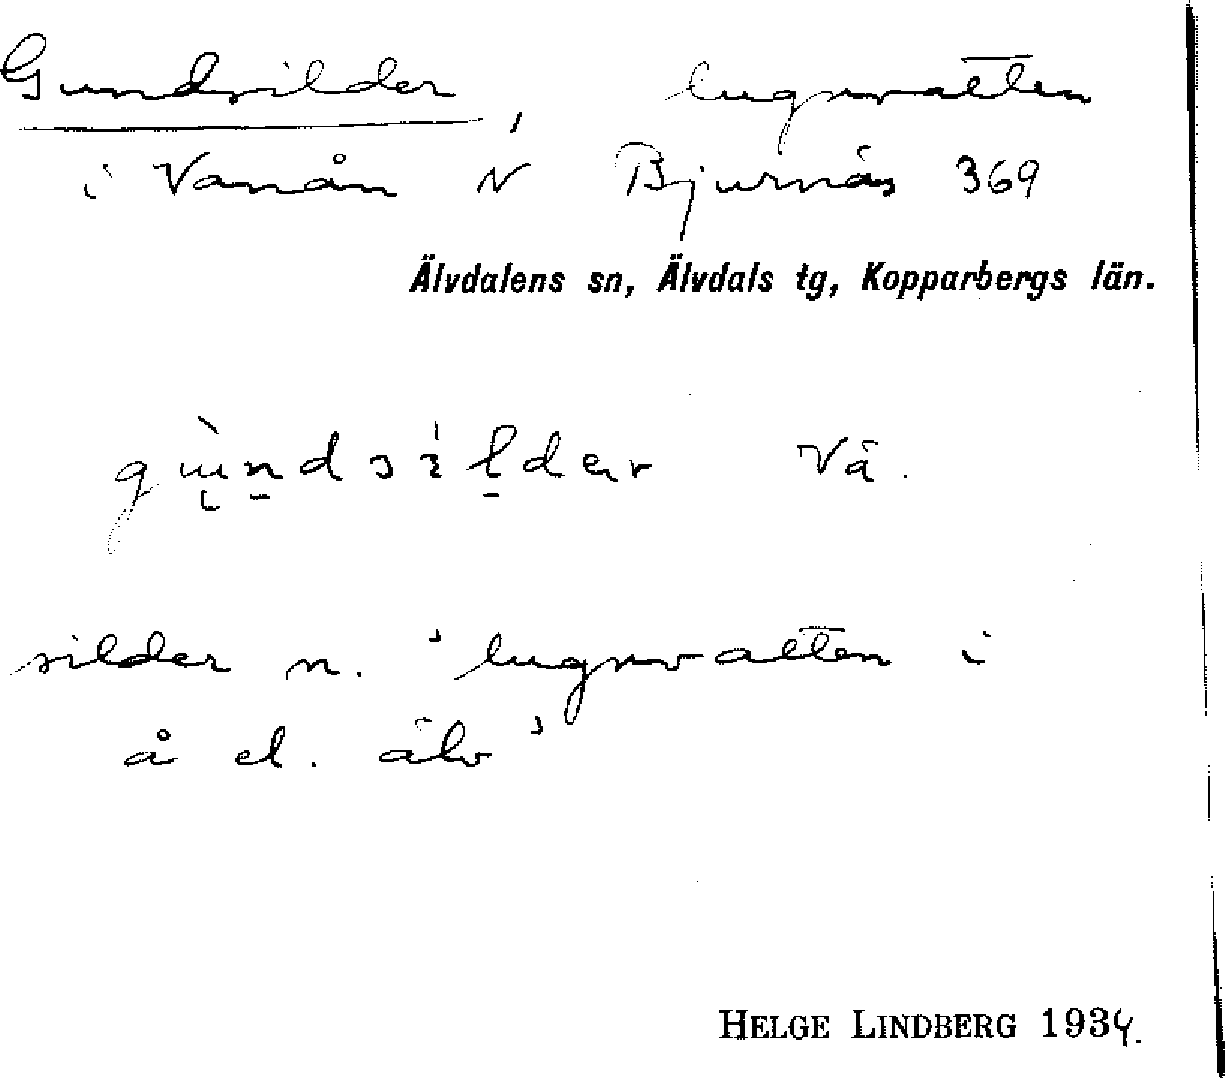 Gundsilder, lugnvatten
i Vanån N Bjurnäs 369
Älvdalens sn, Älvdals tg, Kopparbergs län.
Vä.
silder n. 'lugnvatten i
å el. älv'
HELGE LINDBERG 1934.